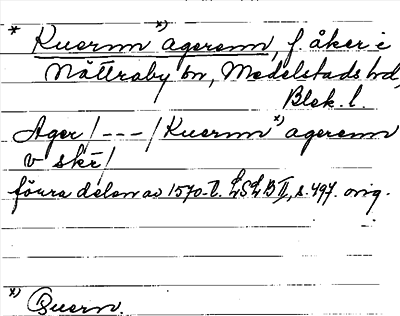 * Kuernn *) agerenn, f. åker i
Nättraby sn, Medelstads hd,
Blek. l.
Ager / - - - / Kuernn *) agerenn
v skr /
förra delen av 1570-t. LSLB II, s. 497. orig.
*) Quern.